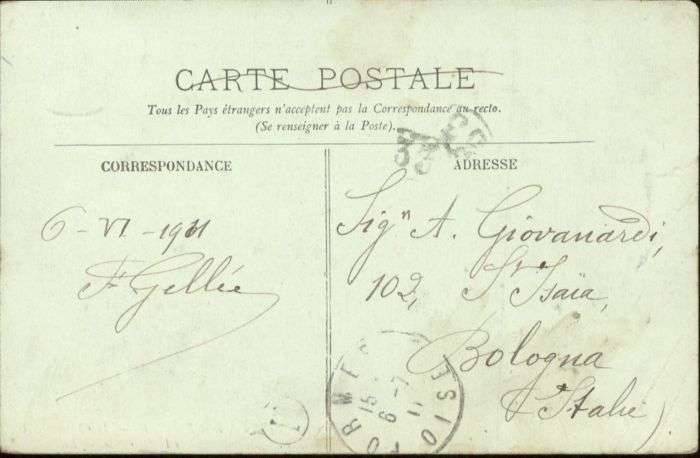 CARTE POSTALE
Tous les Pays étrangers n'acceptent pas la Correspondance au recto.
(Se renseigner à la Poste).
CORRESPONDANCE
6 - VI - 1911
F. Gellée
ADRESSE
Sigⁿ A. Giovanardi,
102, St Isaïa,
Bologna
(Italie)
FORMERIE
OISE
15
6 - 7
11